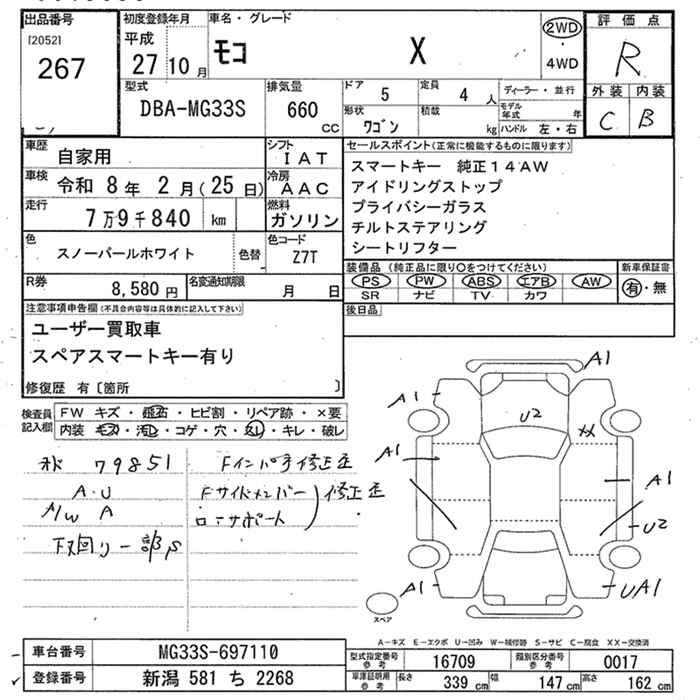 出品番号
[2052]
267
初度登録年月
平成
27 10 月
車名・グレード
モコ X
2WD
・
4WD
評価点
R
外装 内装
C B
型式
DBA-MG33S
排気量
660
cc
ドア
5
定員
4 人
形状
ワゴン
積載
kg
ディーラー・並行
モデル年式 年
ハンドル 左・右
車歴
自家用
シフト
IAT
車検
令和 8年 2月(25日)
冷房
AAC
走行
7万9千840 km
燃料
ガソリン
色
スノーパールホワイト
色替
色コード
Z7T
R券
8,580 円
名変通知期限
月 日
セールスポイント(正常に機能するものに限ります)
スマートキー 純正14AW
アイドリングストップ
プライバシーガラス
チルトステアリング
シートリフター
装備品(純正品に限り○をつけてください)
PS PW ABS エアB AW
SR ナビ TV カワ
新車保証書
有・無
後日品
注意事項申告欄(不具合内容等は具体的に記入して下さい)
ユーザー買取車
スペアスマートキー有り
修復歴 有〔箇所 〕
検査員記入欄
FW キズ・飛石・ヒビ割・リペア跡・×要
内装 キズ・汚レ・コゲ・穴・スレ・キレ・破レ
79851
A.U
A/W A
下回り一部S
Fインパネ修正歪
Fサイドメンバー
修正歪
ロ-サポート
A1
A1
U2
XX
A1
A1
U2
A1
UA1
スペア
A-キズ E-エクボ U-凹み W-補修跡 S-サビ C-腐食 XX-交換済
車台番号
MG33S-697110
登録番号
新潟 581 ち 2268
型式指定番号
参考
16709
類別区分番号
参考
0017
車庫証明用
参考
長さ 339 cm 幅 147 cm 高さ 162 cm